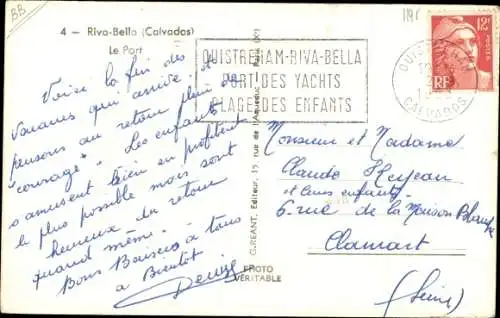 BB
4 - Riva-Bella (Calvados)
Le Port
OUISTREHAM-RIVA-BELLA
PORT DES YACHTS
PLAGE DES ENFANTS
CALVADOS
12F
POSTES
RF
Voici la fin des
vacances qui arrive, et
pensons au retour plein de
"courage". Les enfants
s'amusent bien en profitent
le plus possible mais sont
heureux du retour
quand même.
Bons Baisers à tous
à Bientôt
Denise
G. RÉANT, Éditeur, 15, rue de l'Aqueduc - Paris (X)
PHOTO
VÉRITABLE
Monsieur et Madame
Claude
et leurs enfants
6 rue de la Maison Blanche
Clamart
(Seine)